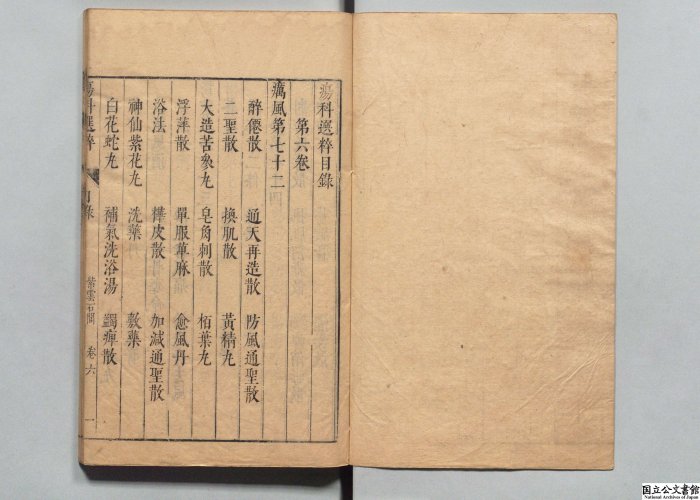 瘍科選粹目錄
第六卷
癘風第七十二
醉僊散 通天再造散 防風通聖散
二聖散 換肌散 黃精丸
大造苦參丸 皂角刺散 栢葉丸
浮萍散 單服草麻 愈風丹
浴法 樺皮散 加減通聖散
神仙紫花丸 洗藥 敷藥
白花蛇丸 補氣洗浴湯 蠲痺散
瘍科選粹 目錄 卷六 一
国立公文書館
National Archives of Japan